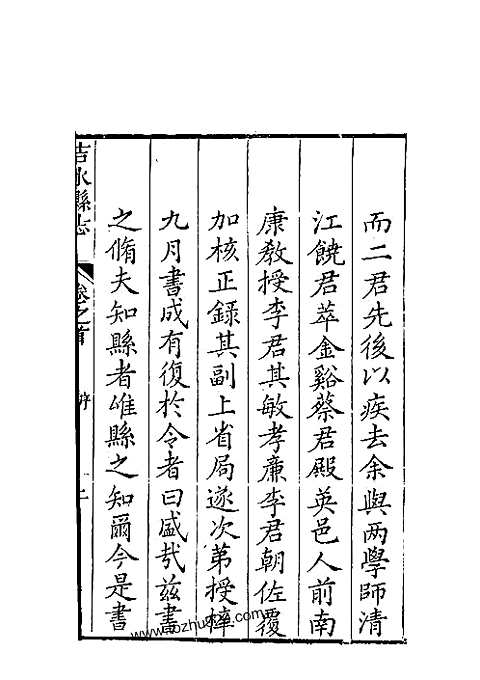 而二君先後以疾去余與两學師清
江饒君萃金谿蔡君殿英邑人前南
康教授李君其敏孝亷李君朝佐覆
加核正録其副上省局遂次第授梓
九月書成有復於令者曰盛㢤兹書
之脩夫知縣者雄縣之知爾今是書
吉水縣志
卷之首
序
二